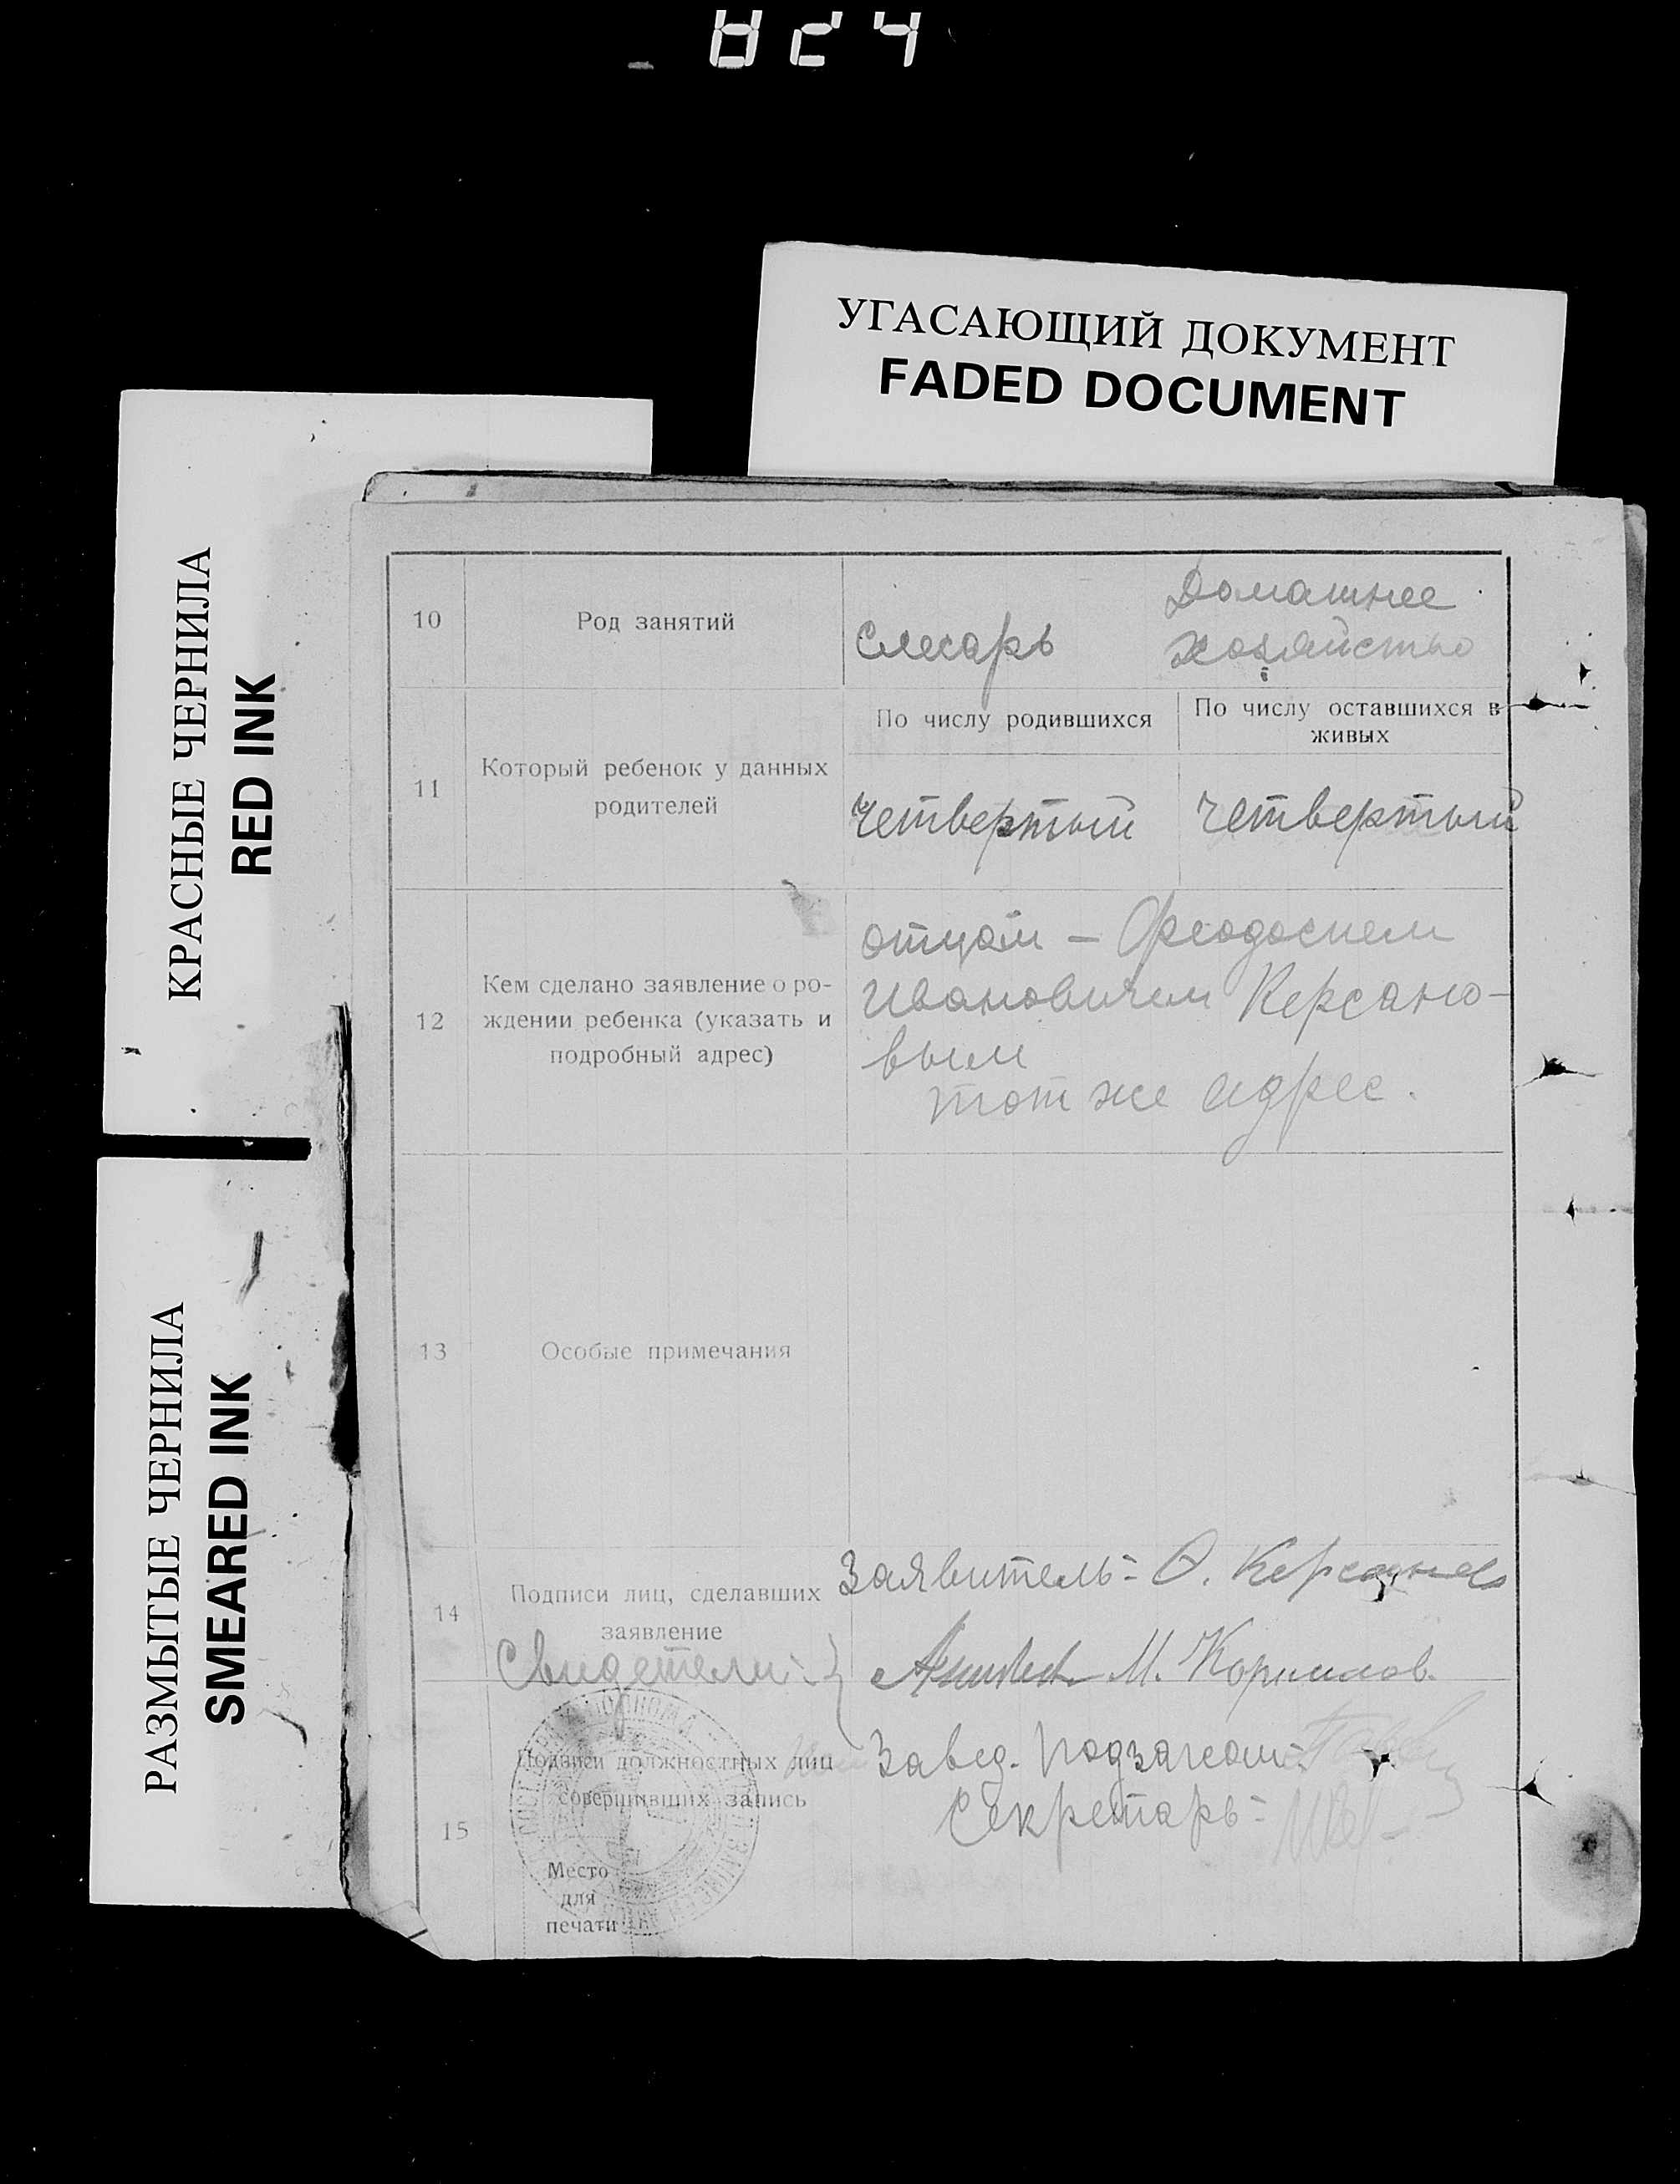 824
УГАСАЮЩИЙ ДОКУМЕНТ
FADED DOCUMENT
КРАСНЫЕ ЧЕРНИЛА
RED INK
РАЗМЫТЫЕ ЧЕРНИЛА
SMEARED INK
10
Род занятий
Слесарь
Домашнее
хозяйство
11
Который ребенок у данных
родителей
По числу родившихся
По числу оставшихся в
живых
Четвертый
Четвертый
12
Кем сделано заявление о ро-
ждении ребенка (указать и
подробный адрес)
отцом – Феодосием
Ивановичем Керсано-
вым
тот же адрес.
13
Особые примечания
14
Подписи лиц, сделавших
заявление
Заявитель - Ѳ. Керсанов
Свидетели:
М. Корнилов.
15
Подписи должностных лиц
совершивших запись
Завед. Подзагсом -
Секретарь -
Место
для
печати